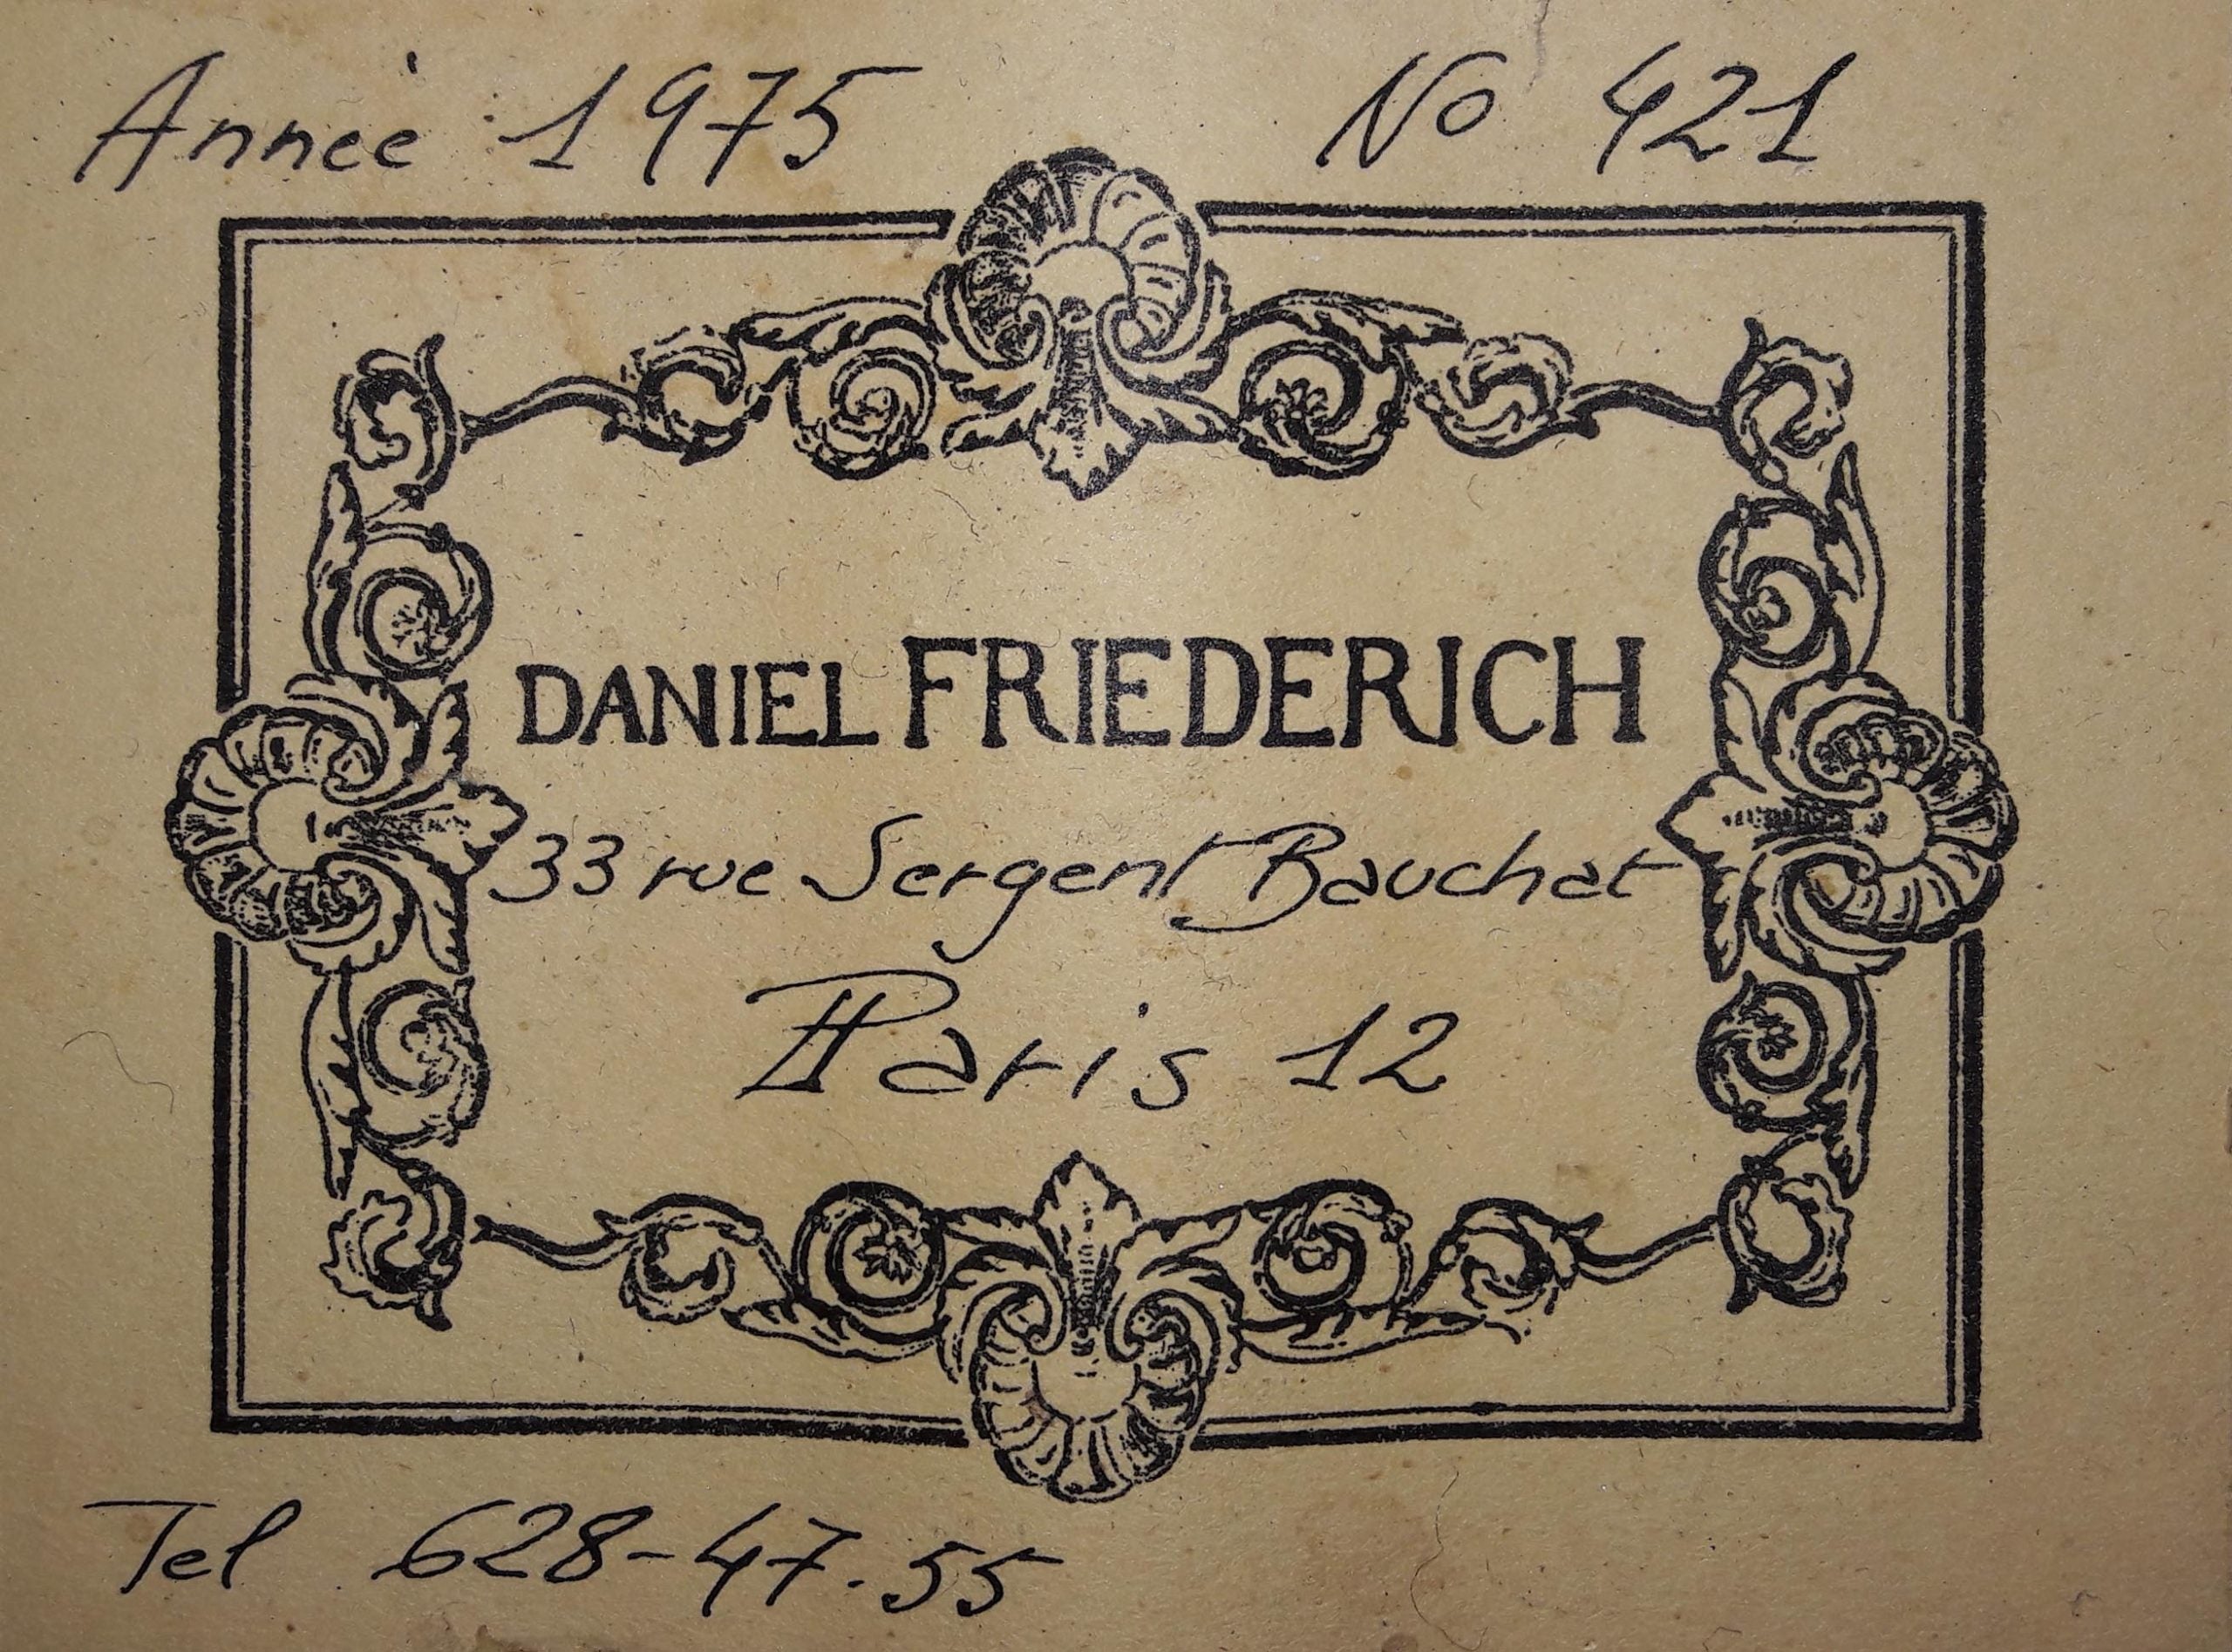 Année 1975 No 421
DANIEL FRIEDERICH
33 rue Sergent Bauchat
Paris 12
Tel 628-47.55